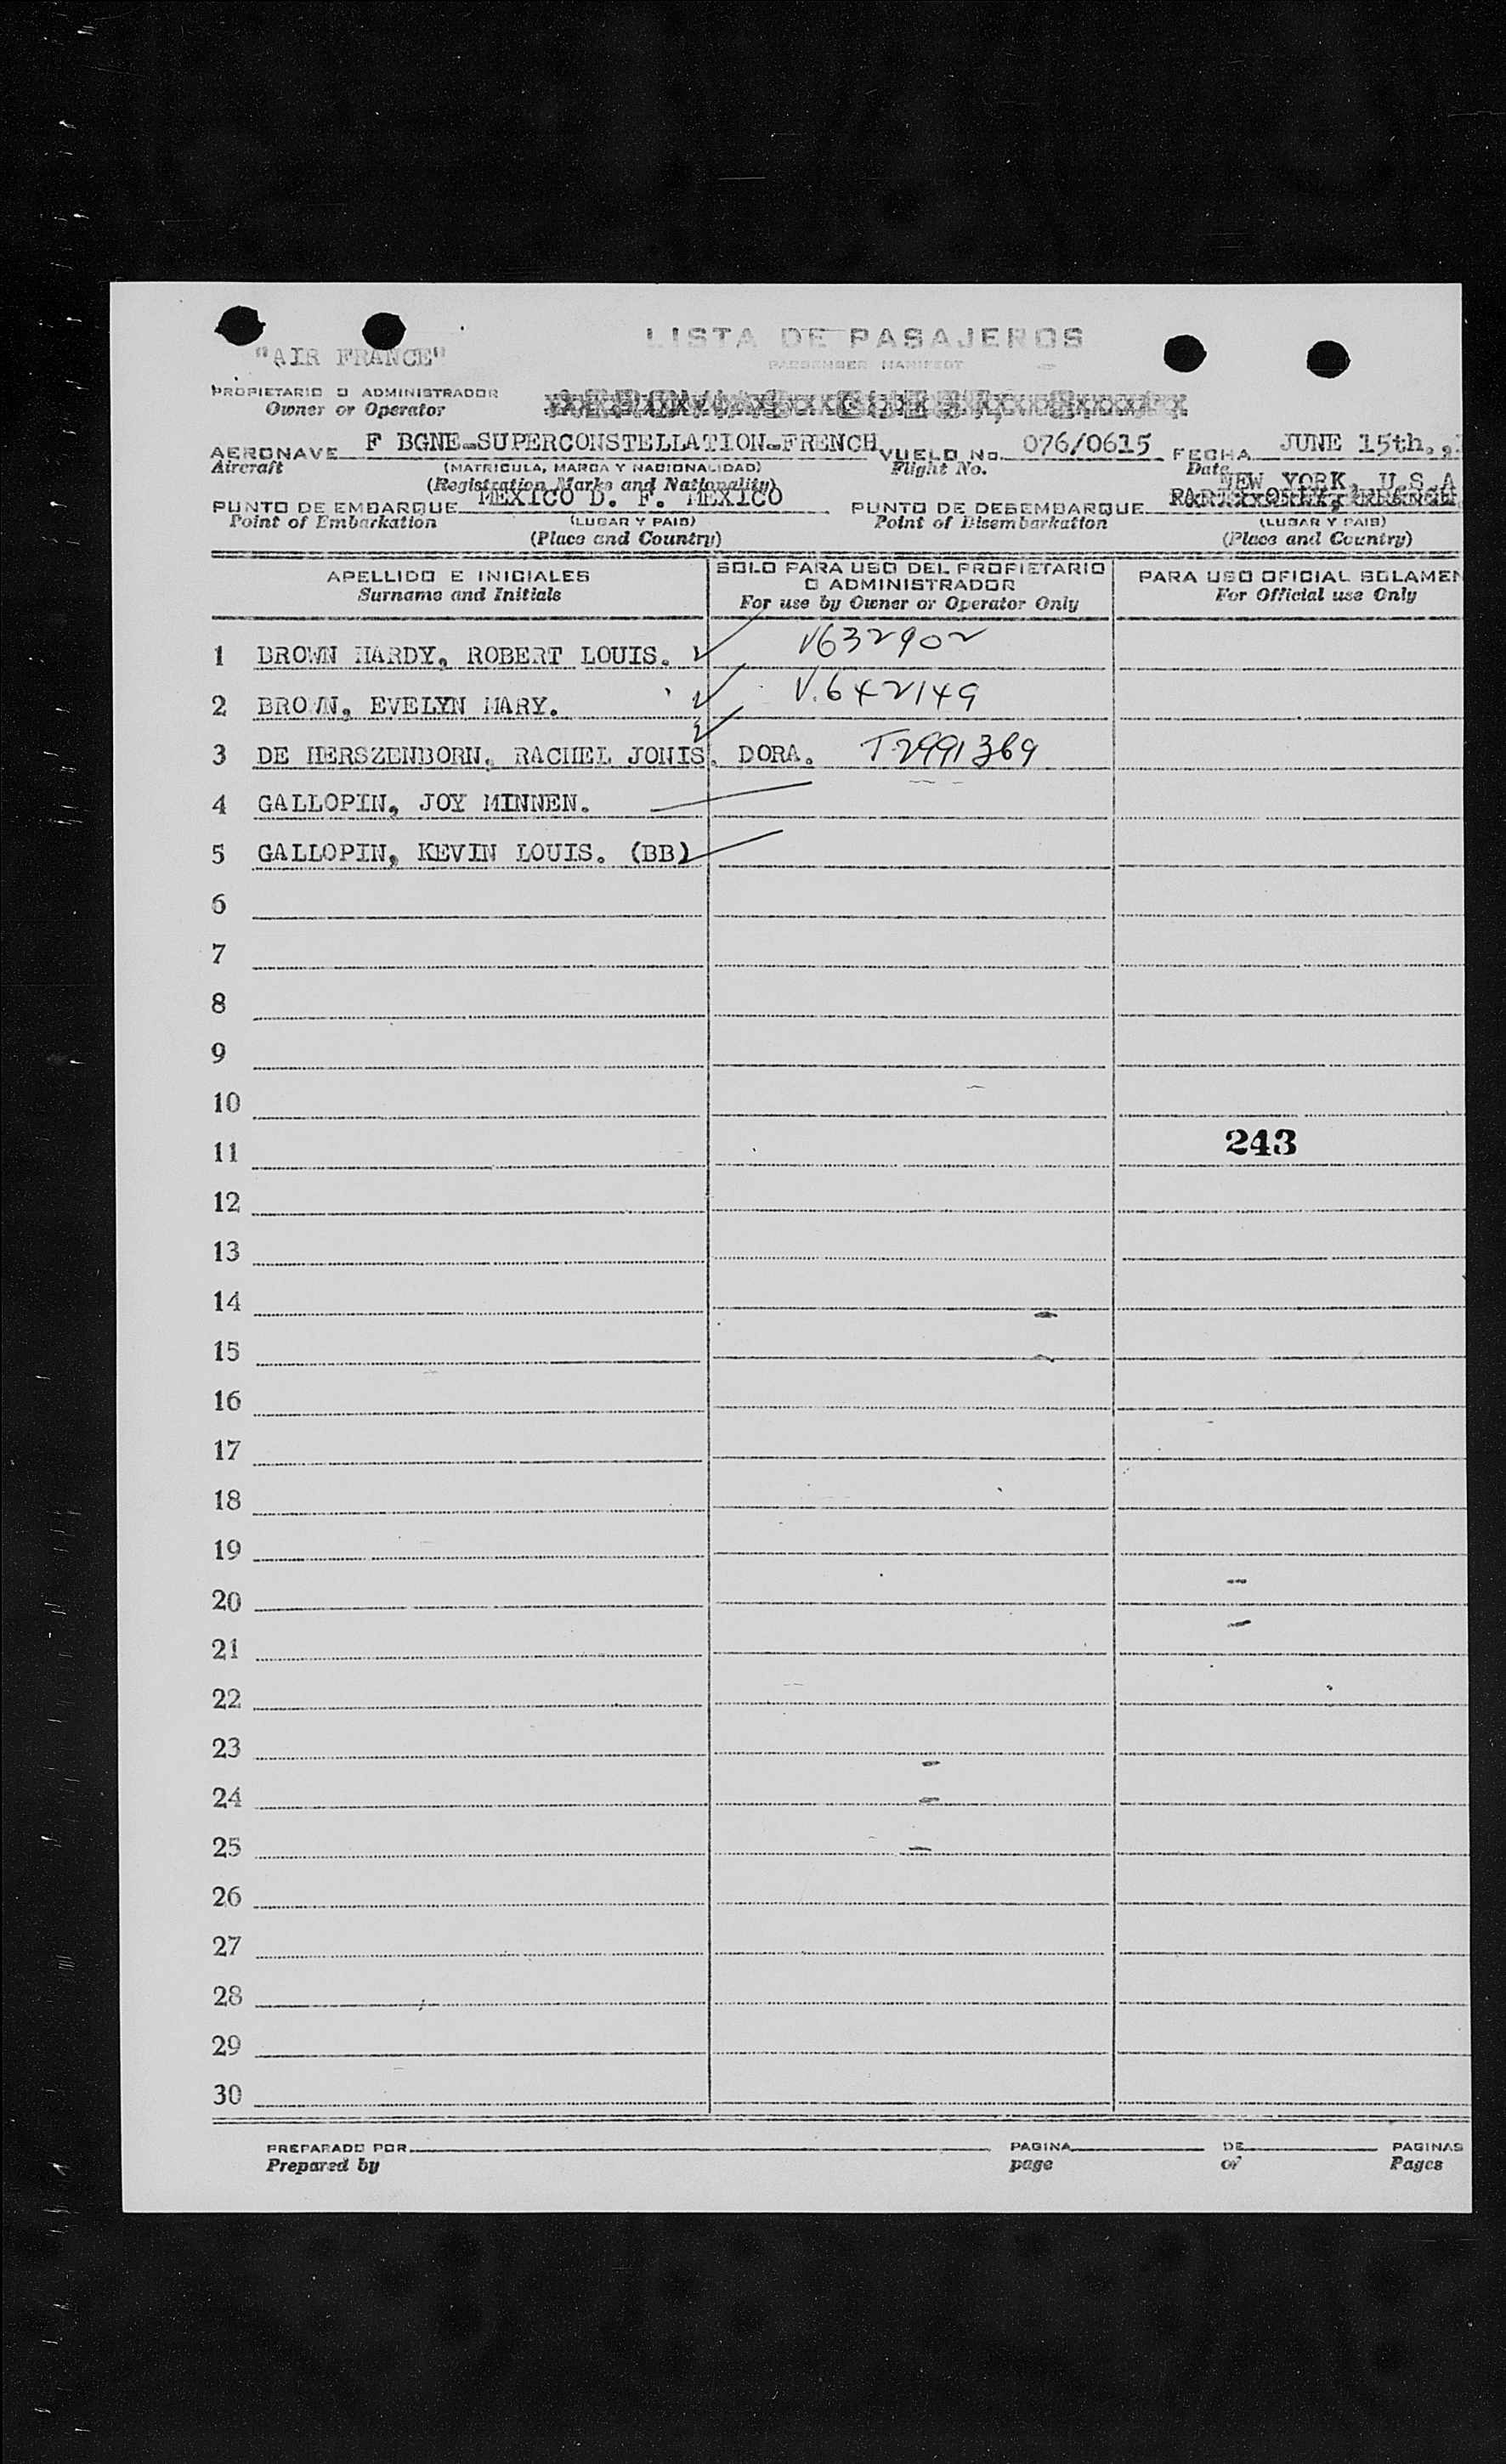 LISTA DE PASAJEROS
PASSENGER MANIFEST
"AIR FRANCE"
PROPIETARIO O ADMINISTRADOR
Owner or Operator
AERONAVE F BGNE-SUPERCONSTELLATION-FRENCH VUELO No. 076/0615 FECHA JUNE 15th.,
Aircraft (MATRICULA, MARCA Y NACIONALIDAD) Flight No. Date
(Registration Marks and Nationality)
NEW YORK, U.S.A
PUNTO DE EMBARQUE MEXICO D. F. MEXICO PUNTO DE DESEMBARQUE
Point of Embarkation (LUGAR Y PAIS) Point of Disembarkation (LUGAR Y PAIS)
(Place and Country) (Place and Country)
APELLIDO E INICIALES
Surname and Initials
SOLO PARA USO DEL PROPIETARIO
O ADMINISTRADOR
For use by Owner or Operator Only
PARA USO OFICIAL SOLAMEN
For Official use Only
1 BROWN HARDY, ROBERT LOUIS. V632902
2 BROWN, EVELYN MARY. V.642149
3 DE HERSZENBORN, RACHEL JONIS. DORA. T-2991369
4 GALLOPIN, JOY MINNEN.
5 GALLOPIN, KEVIN LOUIS. (BB)
6
7
8
9
10
11 243
12
13
14
15
16
17
18
19
20
21
22
23
24
25
26
27
28
29
30
PREPARADO POR PAGINA DE PAGINAS
Prepared by page of Pages